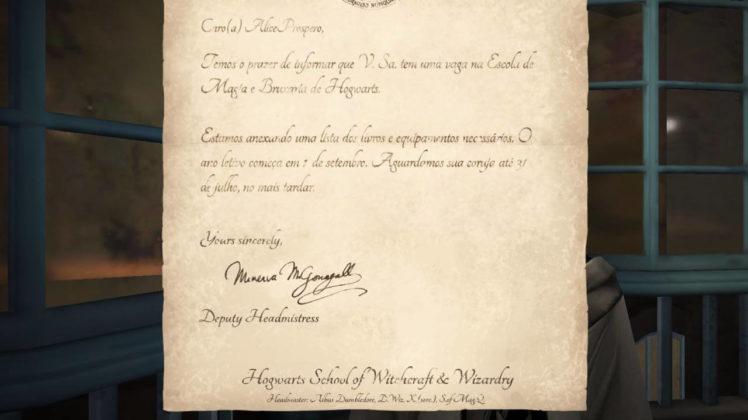 Caro(a) AliceProspero,
Temos o prazer de informar que V. Sa. tem uma vaga na Escola de
Magia e Bruxaria de Hogwarts.
Estamos anexando uma lista dos livros e equipamentos necessários. O
ano letivo começa em 1 de setembro. Aguardamos sua coruja até 31
de julho, no mais tardar.
Yours sincerely,
Minerva McGonagall
Deputy Headmistress
Hogwarts School of Witchcraft & Wizardry
Headmaster: Albus Dumbledore, D.Wiz.,